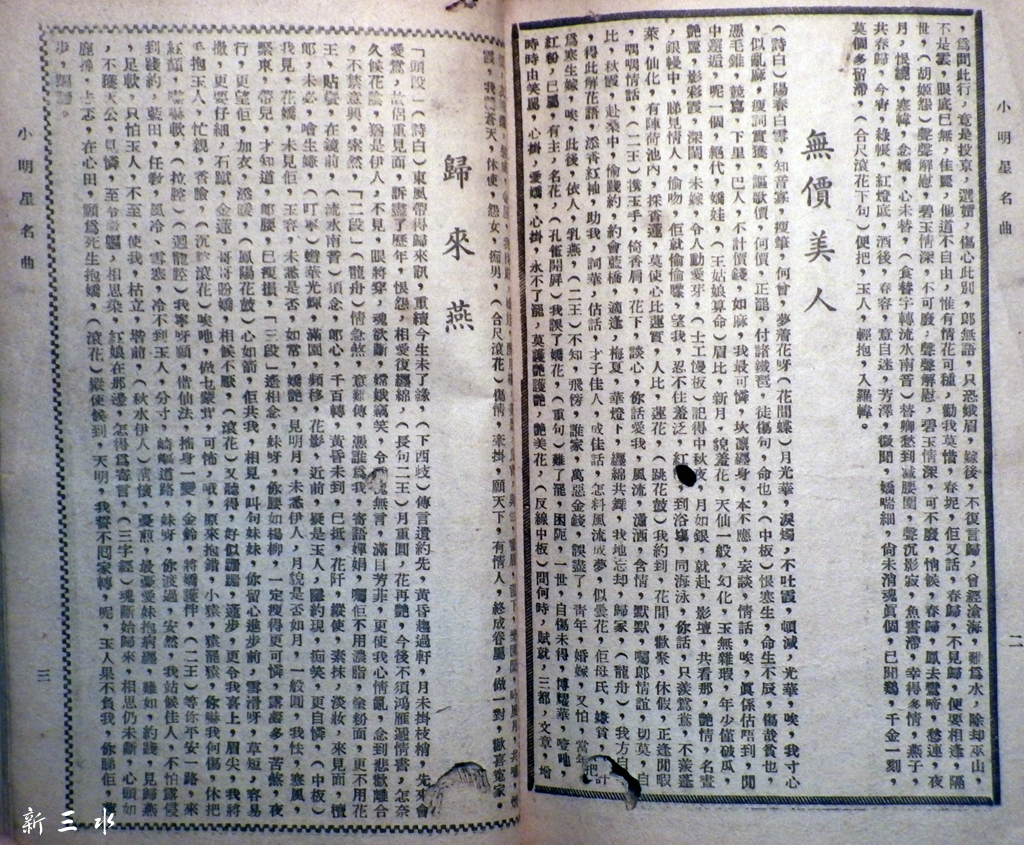 小明星名曲
二
，爲問此行，竟是投京，選婿，傷心此別，郎無語，只恐娥眉，嫁後，不復言歸，曾經滄海，難爲水，除却巫山，
不是雲，眼底已無，佳麗，他道不自由，惟有情花可種，勸我莫惜，春妮，佢又話，春歸，不見歸，便要相逢，隔
世，（胡姬怨）聲聲解慰，碧玉情深，不可廢，聲聲解慰，碧玉情深，可不廢，悄候，春歸，鳳去鸞啼，愁連，夜
月，恨續，寒幃，念嬌，心未替，（食替字轉流水南音）替卿愁到減腰圍，聲沉影寂，魚書滯，幸得多情，燕子，
共春歸，今宵，綠帳，紅燈底，酒後，春容，意自迷，芳澤，微聞，嬌喘細，尙未消魂眞個，已聞鷄，千金一刻，
莫個多留滯，（合尺滾花下句）便把，玉人，輕抱，入羅幃。
無價美人
（詩白）陽春白雪，知音寡，瘦筆，何曾，夢着花呀（花間蝶）月光華，淚燭，不吐霞，頓減，光華，唉，我寸心
，似亂麻，瘦詞實獲，謳歌價，何價，正罷，付諸鐵琶，徒傷句，命也，（中板）恨寒生，命生不辰，傷哉貧也，
憑毛錐，競寫，下里，巴人，不計價錢，如麻，我最可憐，坎凜纏身，本不應，妄談，情話，唉，眞係估唔到，閒
中選遊，呢一個，絕代，嬌娃，（王姑娘算命）眉比，新月，貌羞花，天仙一般，幻化，玉無雜瑕，年少僅破瓜，
艷麗，影彩霞，深閨，未嫁，令人動愛牙，（士工慢板）記得中秋夜，月如銀，就赴，影壇，共看那，艷情，名畫
，銀幔中，睇見情人，偷吻，佢就偷偷嚟，望我，忍不住羞泛，紅　到浴塲，同海泳，你話，只羨鴛鴦，不羨蓬
萊，仙化，有陣荷池內，採青蓮，莫使心比蓮實，人比，蓮花，（跳花鼓）我約到，花間，歡聚，休假，正逢閒暇
，喁喁情話，（二王）撲玉手，倚香肩，花下，談心，你話愛我，風流，瀟洒，含情，默默，囑郎情誼，切莫，自
比，秋霞，赴桑中，偷踐約，約會藍橋，適逢，梅夏，華燈下，纏綿共舞，我地忘却，歸家，（龍舟），我方自
，得此解花語，添香紅袖，助我，詞華，估話，才子佳人，成佳話，怎料風流成夢，似曇花，佢母氏，嫌貧，計
爲寒生嫁，唉，此後，依人，乳燕，（二王）不知，飛傍，誰家，萬惡金錢，誤盡了，靑年，婚嫁，又怕，當年，把
紅粉，已屬，有主，名花，（孔雀開屛）我誤了嬌花，（重句）難了罷，困阨，一世，自傷未得，博耀華，噎吔，
時時由笑罵，心掛，愛嬌，心掛，永不了罷，莫護艷護艷，艷美花，（反線中板）問何時，賦就，三都，文章，增
霞，我　蒼天，休使，怨女，痴男，（合尺滾花）傷情，牽掛，願天下，有情人，終成眷屬，做一對，歡喜寃家。
歸來燕
「頭段」（詩白）東風帶得歸來訊，重續今生未了緣，（下西岐）傳言遺約先，黃昏趨過軒，月未掛枝梢，先來會
愛鴛，故侶重見面，訴盡了歷年，恨怨，相愛復纏綿，（長句二王）月重圓，花再艷，今後不須鴻雁遞情書，怎奈
久候花陰，猶是伊人，不見，眼將穿，魂欲斷，嫦娥竊笑，令　無言，滿目芳菲，更使我心情亂，念到悲歡離合
，不禁意興，索然，「二段」（龍舟）情急煞，意難傳，憑誰爲我，寄語嬋娟，囑佢不用濃脂，金粉面，更不用花
王，貼髮，在鏡前，（流水南音）須念，郎心，千百轉，黃昏未到，已抵，花阡，縱使，素抹，淡妝，來見面，檀
郎，未必，噲生嫌，（叮嚀）蟾華光輝，滿園，頻移，花影，近前，疑是玉人，踐約現，痴笑，更自憐，（中板）
我見，花嬌，未見佢，玉容，未悉是否，如常，嬌艷，見明月，未悉伊人，月貌是否如月，一般圓，我怯，寒風，
緊束，帶兒，才知道，郎腰，已瘦損，「三段」遙相念，妹呀，你腰如楊柳，一定瘦得更可憐，露凝多，苦煞，夜
行，更望佢，加衣，添暖，（鳳陽花鼓）心如箭，佢共我，相見，叫句妹妹，你留心進步前，雪滑呀，草短，容易
撒，更要仔細，石蹴，金蓮，哥哥盼嬌，相候不厭，（滾花）又聽得，好似蹣跚，蓮步，更令我喜上，眉尖，我將
手抱玉人，忙親，香臉，（沉腔滾花）唉吔，做乜蒙茸，可怖，哦，原來抱錯，小猿，猿罷猿，你嚇我何傷，休把
紅顏，嚇嚇軟，（拉腔）（迴龍腔）我寧呀願，借仙法，搖身一變，金鈴，將嬌護伴，（二王）等你平安一路，來
到踐約，藍田，任教，風冷，雪寒，冷不到玉人，分寸，崎嶇道路，妹呀，你渡過，安然，我站候佳人，不怕露侵
，足軟，只怕玉人，不至，使我，枯立，堦前，（秋水伊人）情懷，憂煎，最憂愛妹抱病纏，難如，約踐，見歸燕
，不隨天公，見憐，至令　軀，相思染，紅娘在那邊，怎得爲寄言，（三字經）魂斷始歸來，相思仍未斷，心頭如
鹿撞，上志，在心田，願爲死生抱嬌，（滾花）縱使候到，天明，我誓不囘家轉，呢，玉人果不負我，你睇佢，
步，蹁躚。
三
小明星名曲
新三水